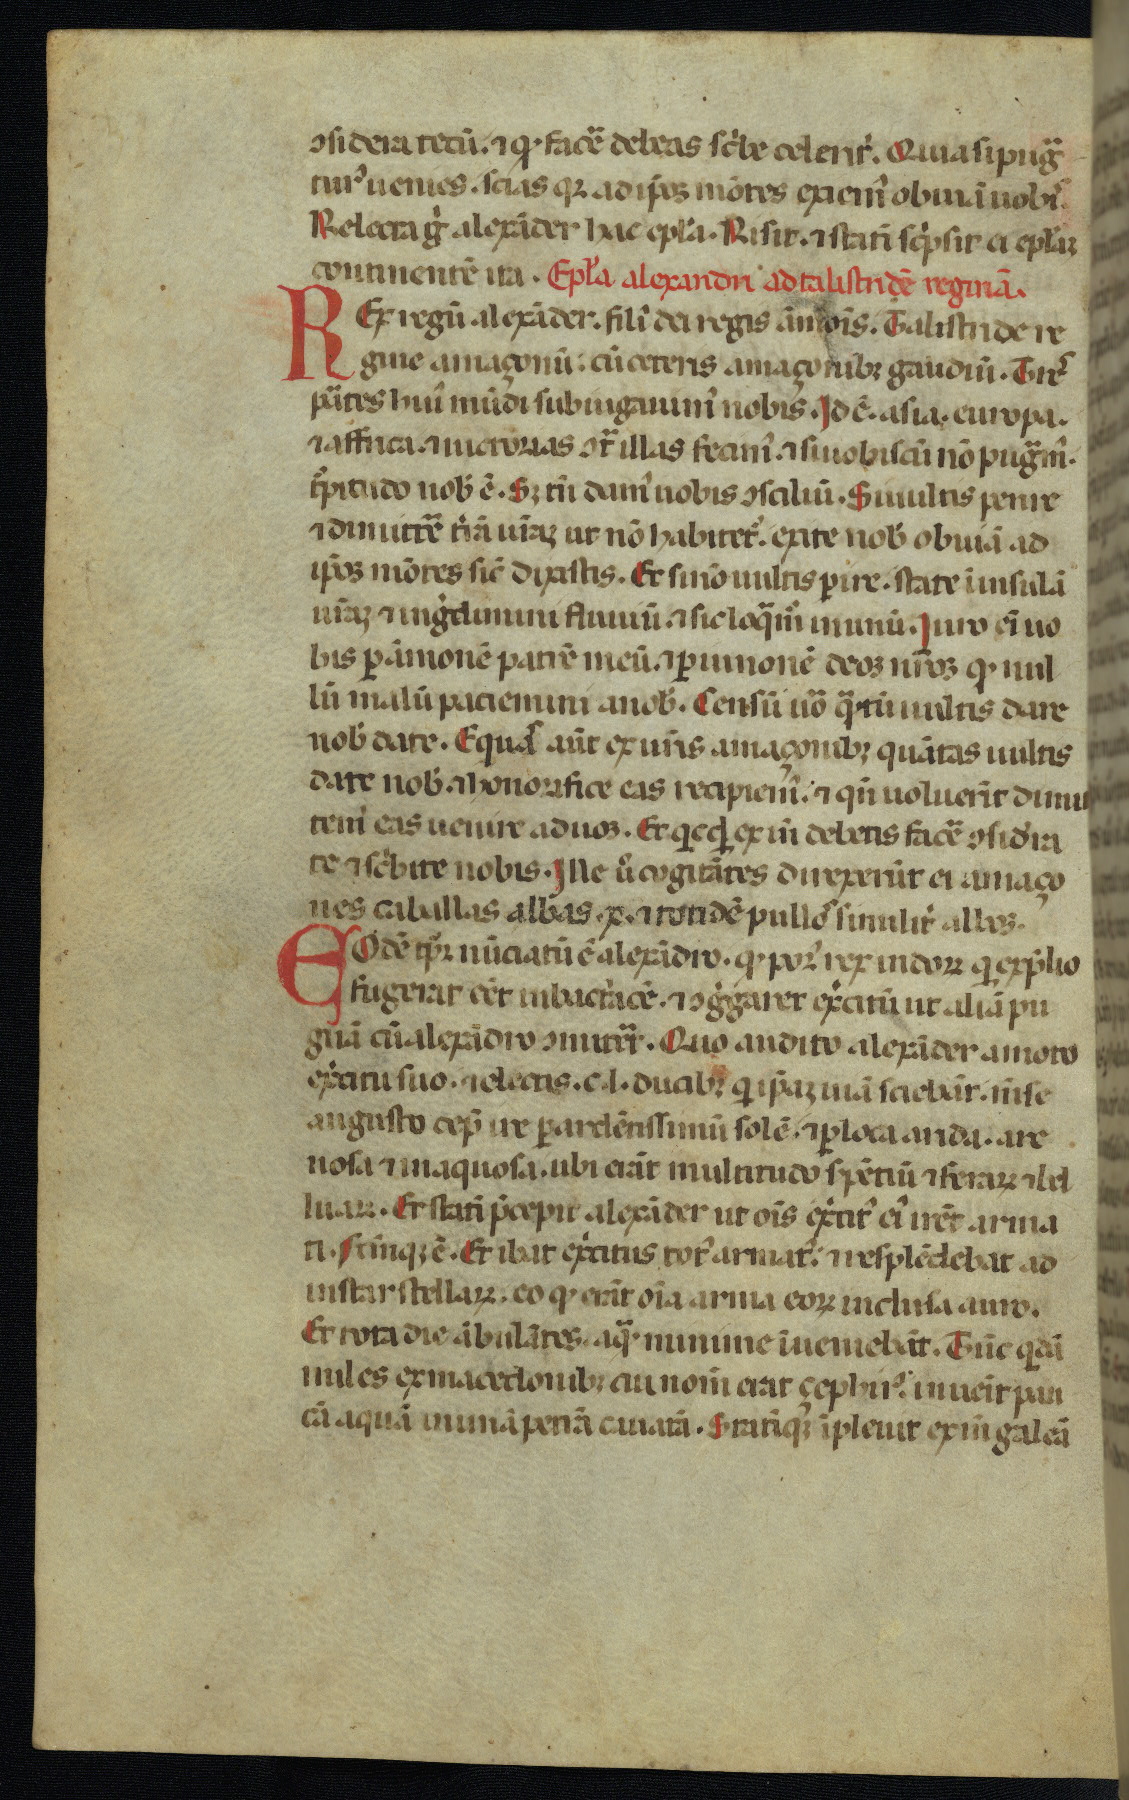 ↄsidera tecū. ⁊ qͥ facē debeas sc̓be celerit̓. Quia si pug̃
tur᾽ uenies. scias qꝫ ad ip̄os mōtes exiem᾽ obuiā uobis᾽
Relecta g̊ alexāder hac epl̓a. Risit. ⁊ statī sc̓psit ei epl̓aꝫ
continentē ita. Epl̓a alexandri ad talistridē reginā.
REx regū alexāder. fili᾽ dei regis āmōis. Talistride re
gine amaçonū. cū ceteris amaçonibꝫ gaudiū. Tres᾽
ptes hui᾽ mūdi subiugauim᾽ nobis. Id ē. asia. europa.
⁊ affrica. ⁊ uictorias ↄt̃ illas fecim᾽. ⁊ si uobiscū nō pug̃m᾽.
t᾽pitudo nob̓ ē. Sꝫ tn̄ dam᾽ uobis ↄsiliū. Si uultis perire
⁊ dimittē tr̄ā ur̄aꝫ ut nō habitet᾽. exite nob̓ obuiā ad
ip̄os mōtes sic̄ dixistis. Et si nō uultis ꝑire. state ī insulā
ur̄aꝫ ⁊ ingdimini fluuiū. ⁊ sic loq̄m᾽ in unū. Iuro ei᾽ uo
bis ꝑ āmonē patrē meū. ⁊ ꝑ iunonē deos nr̄os qͥ nul
lū malū paciemini a nob̓. Censū uo̓ q̃tū uultis dare
nob̓ date. Equas᾽ aūt ex ur̄is amaçonibꝫ quātas uultis
date nob̓. ⁊ honorifice eas recipiem᾽. ⁊ qn̄ uoluerit dimit
tem᾽ eas uenire ad uos. Et qcqd exin̄ debetis facē ↄsid̓ra
te ⁊ sc̓bite nobis. Ille u̓ cogitātes direxerūt ei amaço
nes caballas albas .x. ⁊ totidē pullos᾽ similit̓ albos.
EOdē tp̄r nūciatū ē alexādro. qͥ por᾽ rex indorꝝ q exp̄lio
fugerat eēt in bactracē. ⁊ ↄgͥgaret ex̓citū ut aliā pu
gnā cū alexādro ↄmittēt. Quo audito alexāder amoto
ex̓citu suo. ⁊ electis .c.l. ducibꝫ q ip̄aꝫ uiā sciebāt. m̄se
augusto cep̄ ire ꝑ ardētissimū solē. ⁊ ꝑ loca arida. are
nosa ⁊ inaquosa. ubi erāt multitudo sp̄entiū ⁊ ferarꝝ ⁊ bel
luarꝝ. Et statī p̄cepit alexāder ut oīs ex̓cit᾽ ei᾽ irēt arma
ti. factūqꝫ ē. Et ibat ex̓citus tot᾽ armat᾽. ⁊ resplēdebat ad
instar stellarꝝ. eo qͥ erāt oīa arma eorꝝ inclusa auro.
Et tota die ābulātes. aq̃ minime īueniebāt. Tūc qdā
miles ex macedonibꝫ cui nom̄ erat çephir᾽. inueīt pau
cā aquā in unā petrā cauatā. Statīqꝫ īpleuit exin̄ galeā